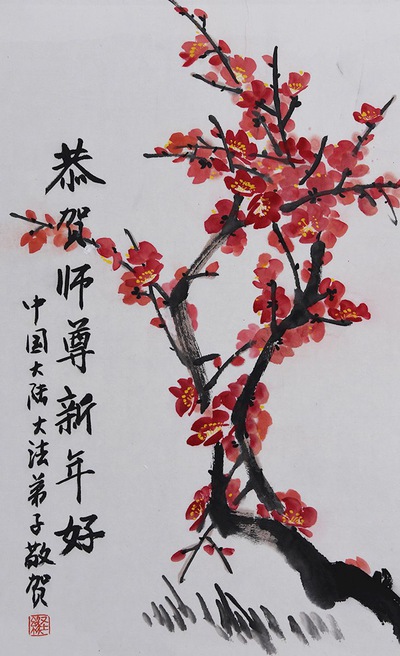 恭贺师尊新年好
中国大陆大法弟子敬贺